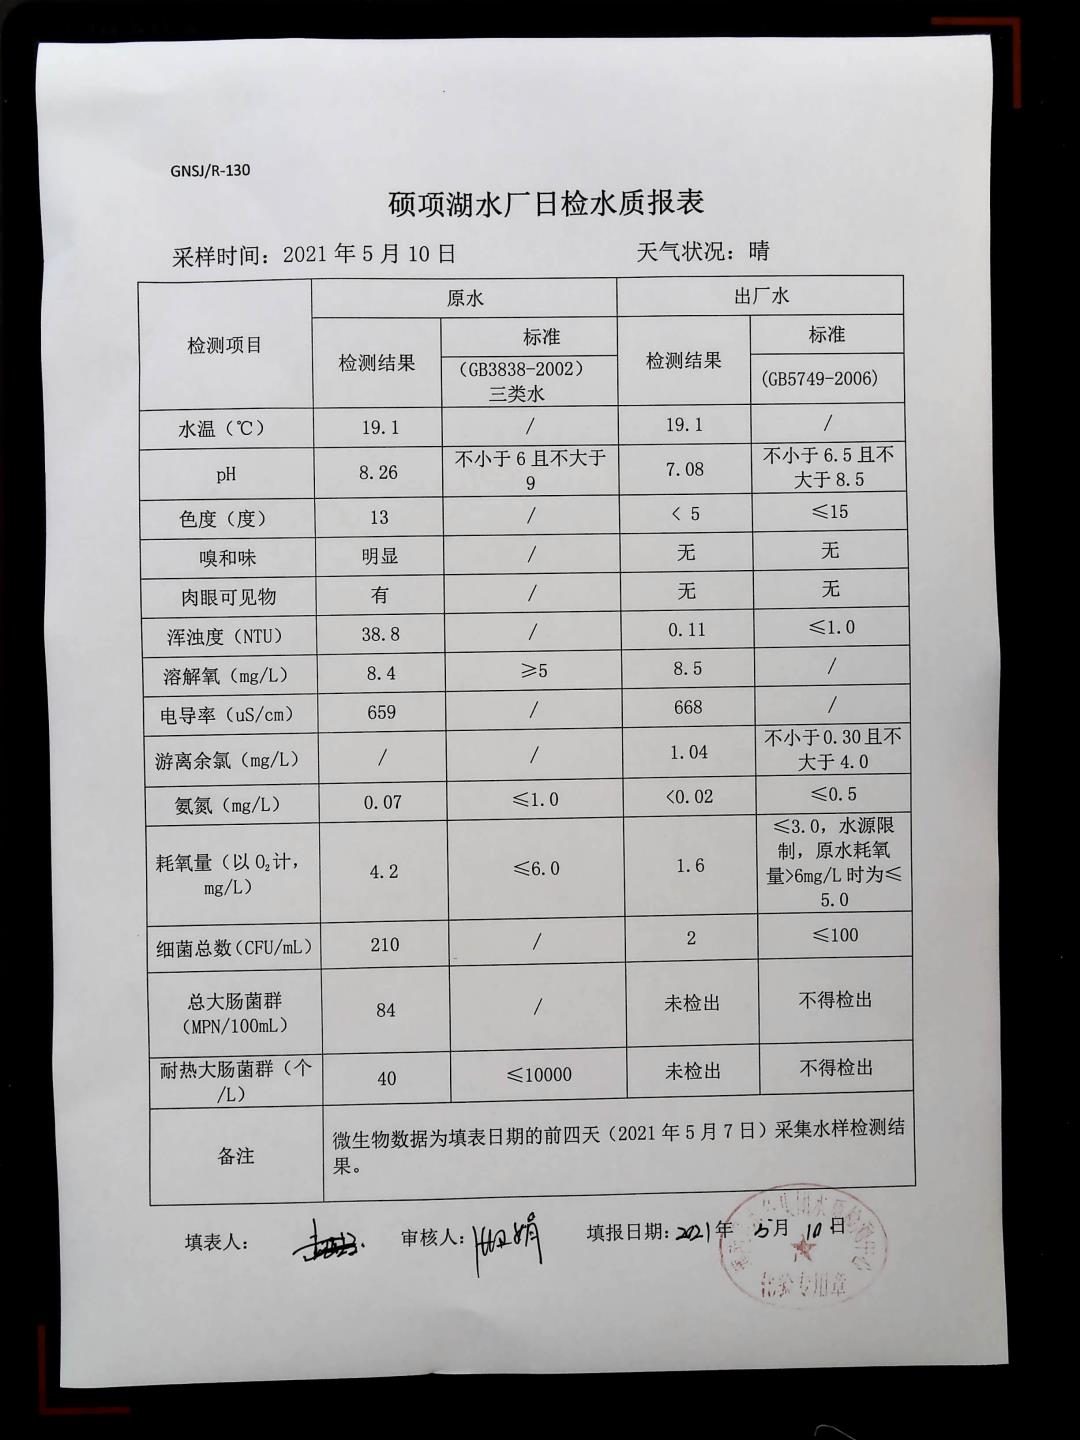 GNSJ/R-130
硕项湖水厂日检水质报表
采样时间：2021 年 5 月 10 日 天气状况：晴
检测项目 原水 出厂水
检测结果 标准 检测结果 标准
（GB3838-2002）
三类水
(GB5749-2006)
水温（℃） 19.1 / 19.1 /
pH 8.26 不小于 6 且不大于
9
7.08 不小于 6.5 且不
大于 8.5
色度（度） 13 / < 5 ≤15
嗅和味 明显 / 无 无
肉眼可见物 有 / 无 无
浑浊度（NTU） 38.8 / 0.11 ≤1.0
溶解氧（mg/L） 8.4 ≥5 8.5 /
电导率（uS/cm） 659 / 668 /
游离余氯（mg/L） / / 1.04 不小于 0.30 且不
大于 4.0
氨氮（mg/L） 0.07 ≤1.0 <0.02 ≤0.5
耗氧量（以 O₂计，
mg/L）
4.2 ≤6.0 1.6 ≤3.0，水源限
制，原水耗氧
量>6mg/L 时为≤
5.0
细菌总数（CFU/mL） 210 / 2 ≤100
总大肠菌群
（MPN/100mL）
84 / 未检出 不得检出
耐热大肠菌群（个
/L）
40 ≤10000 未检出 不得检出
备注 微生物数据为填表日期的前四天（2021 年 5 月 7 日）采集水样检测结
果。
填表人： 审核人： 填报日期：2021年 5月 10日
专用章